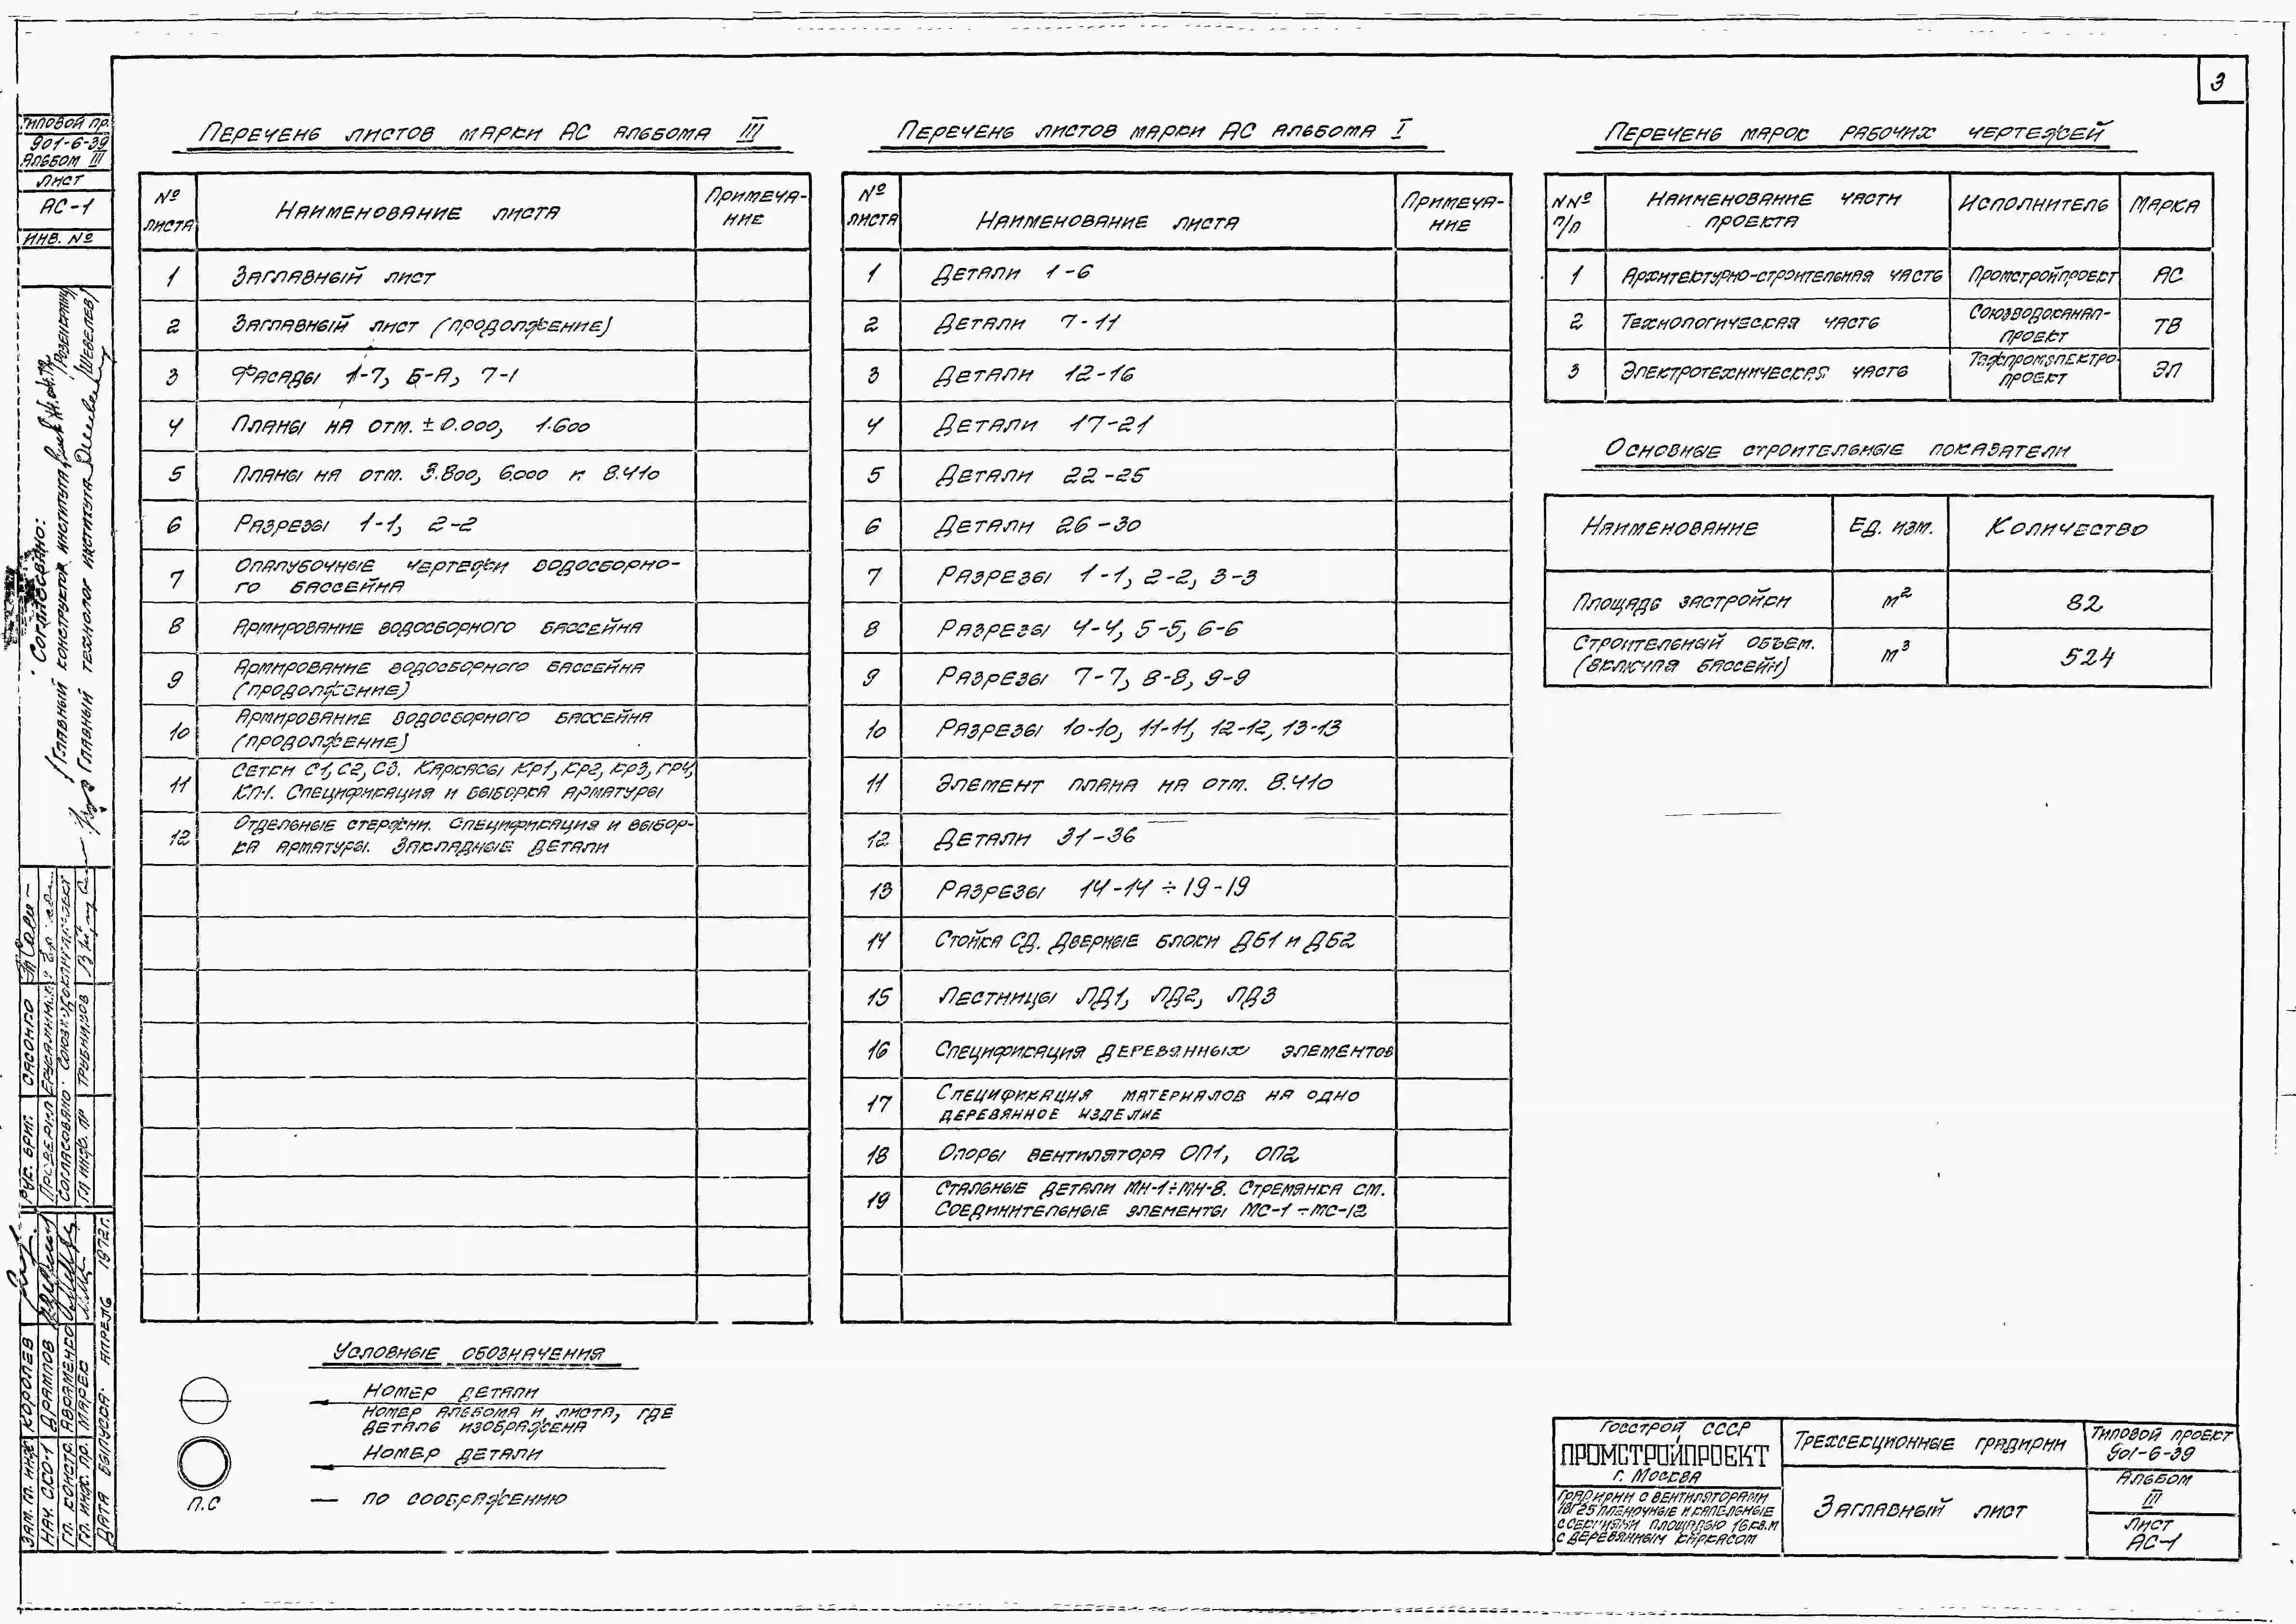 3
Типовой пр.
901-6-39
Альбом III
Лист
АС-1
Инв. №
Перечень листов марки АС альбома III
№ листа
Наименование листа
Примеча-
ние
1 Заглавный лист
2 Заглавный лист (продолжение)
3 Фасады 1-7, Б-А, 7-1
4 Планы на отм. ±0.000, 1.600
5 Планы на отм. 3.800, 6.000 и 8.410
6 Разрезы 1-1, 2-2
7 Опалубочные чертежи водосборно-
го бассейна
8 Армирование водосборного бассейна
9 Армирование водосборного бассейна
(продолжение)
10 Армирование водосборного бассейна
(продолжение)
11 Сетки С1, С2, С3. Каркасы КР1, КР2, КР3, КР4,
КП1. Спецификация и выборка арматуры
12 Отдельные стержни. Спецификация и выбор-
ка арматуры. Закладные детали
Перечень листов марки АС альбома I
№ листа
Наименование листа
Примеча-
ние
1 Детали 1-6
2 Детали 7-11
3 Детали 12-16
4 Детали 17-21
5 Детали 22-25
6 Детали 26-30
7 Разрезы 1-1, 2-2, 3-3
8 Разрезы 4-4, 5-5, 6-6
9 Разрезы 7-7, 8-8, 9-9
10 Разрезы 10-10, 11-11, 12-12, 13-13
11 Элемент плана на отм. 8.410
12 Детали 31-36
13 Разрезы 14-14 ÷ 19-19
14 Стойка СД. Дверные блоки ДБ1 и ДБ2
15 Лестницы ЛД1, ЛД2, ЛД3
16 Спецификация деревянных элементов
17 Спецификация материалов на одно
деревянное изделие
18 Опоры вентилятора ОП1, ОП2
19 Стальные детали МН-1÷МН-8. Стремянка см.
Соединительные элементы МС-1 ÷ МС-12
Перечень марок рабочих чертежей
№№ п/п
Наименование части
проекта
Исполнитель
Марка
1 Архитектурно-строительная часть Промстройпроект АС
2 Технологическая часть Союзводоканал-
проект ТВ
3 Электротехническая часть Тяжпромэлектро-
проект ЭЛ
Основные строительные показатели
Наименование Ед. изм. Количество
Площадь застройки м² 82
Строительный объем.
(включая бассейн) м³ 524
Условные обозначения
Номер детали
Номер альбома и листа, где
деталь изображена
Номер детали
П.С — по соображению
Согласовано:
Главный конструктор института
Главный технолог института /Шевелев/
Рук. бриг. Сасонко
Проверил
Согласовано: Союзводоканалпроект
Гл. инж. пр Трубников
Зам. гл. инж Королев
Нач. ССО-1 Драмлов
Гл. констр. Авраменко
Гл. инж. пр. Марес
Дата выпуска: апрель 1972г.
Госстрой СССР
ПРОМСТРОЙПРОЕКТ
г. Москва
Градирни с вентиляторами
1ВГ25 пленочные и капельные
с секциями площадью 16 кв.м
с деревянным каркасом
Трехсекционные градирни
Заглавный лист
Типовой проект
901-6-39
Альбом
III
Лист
АС-1